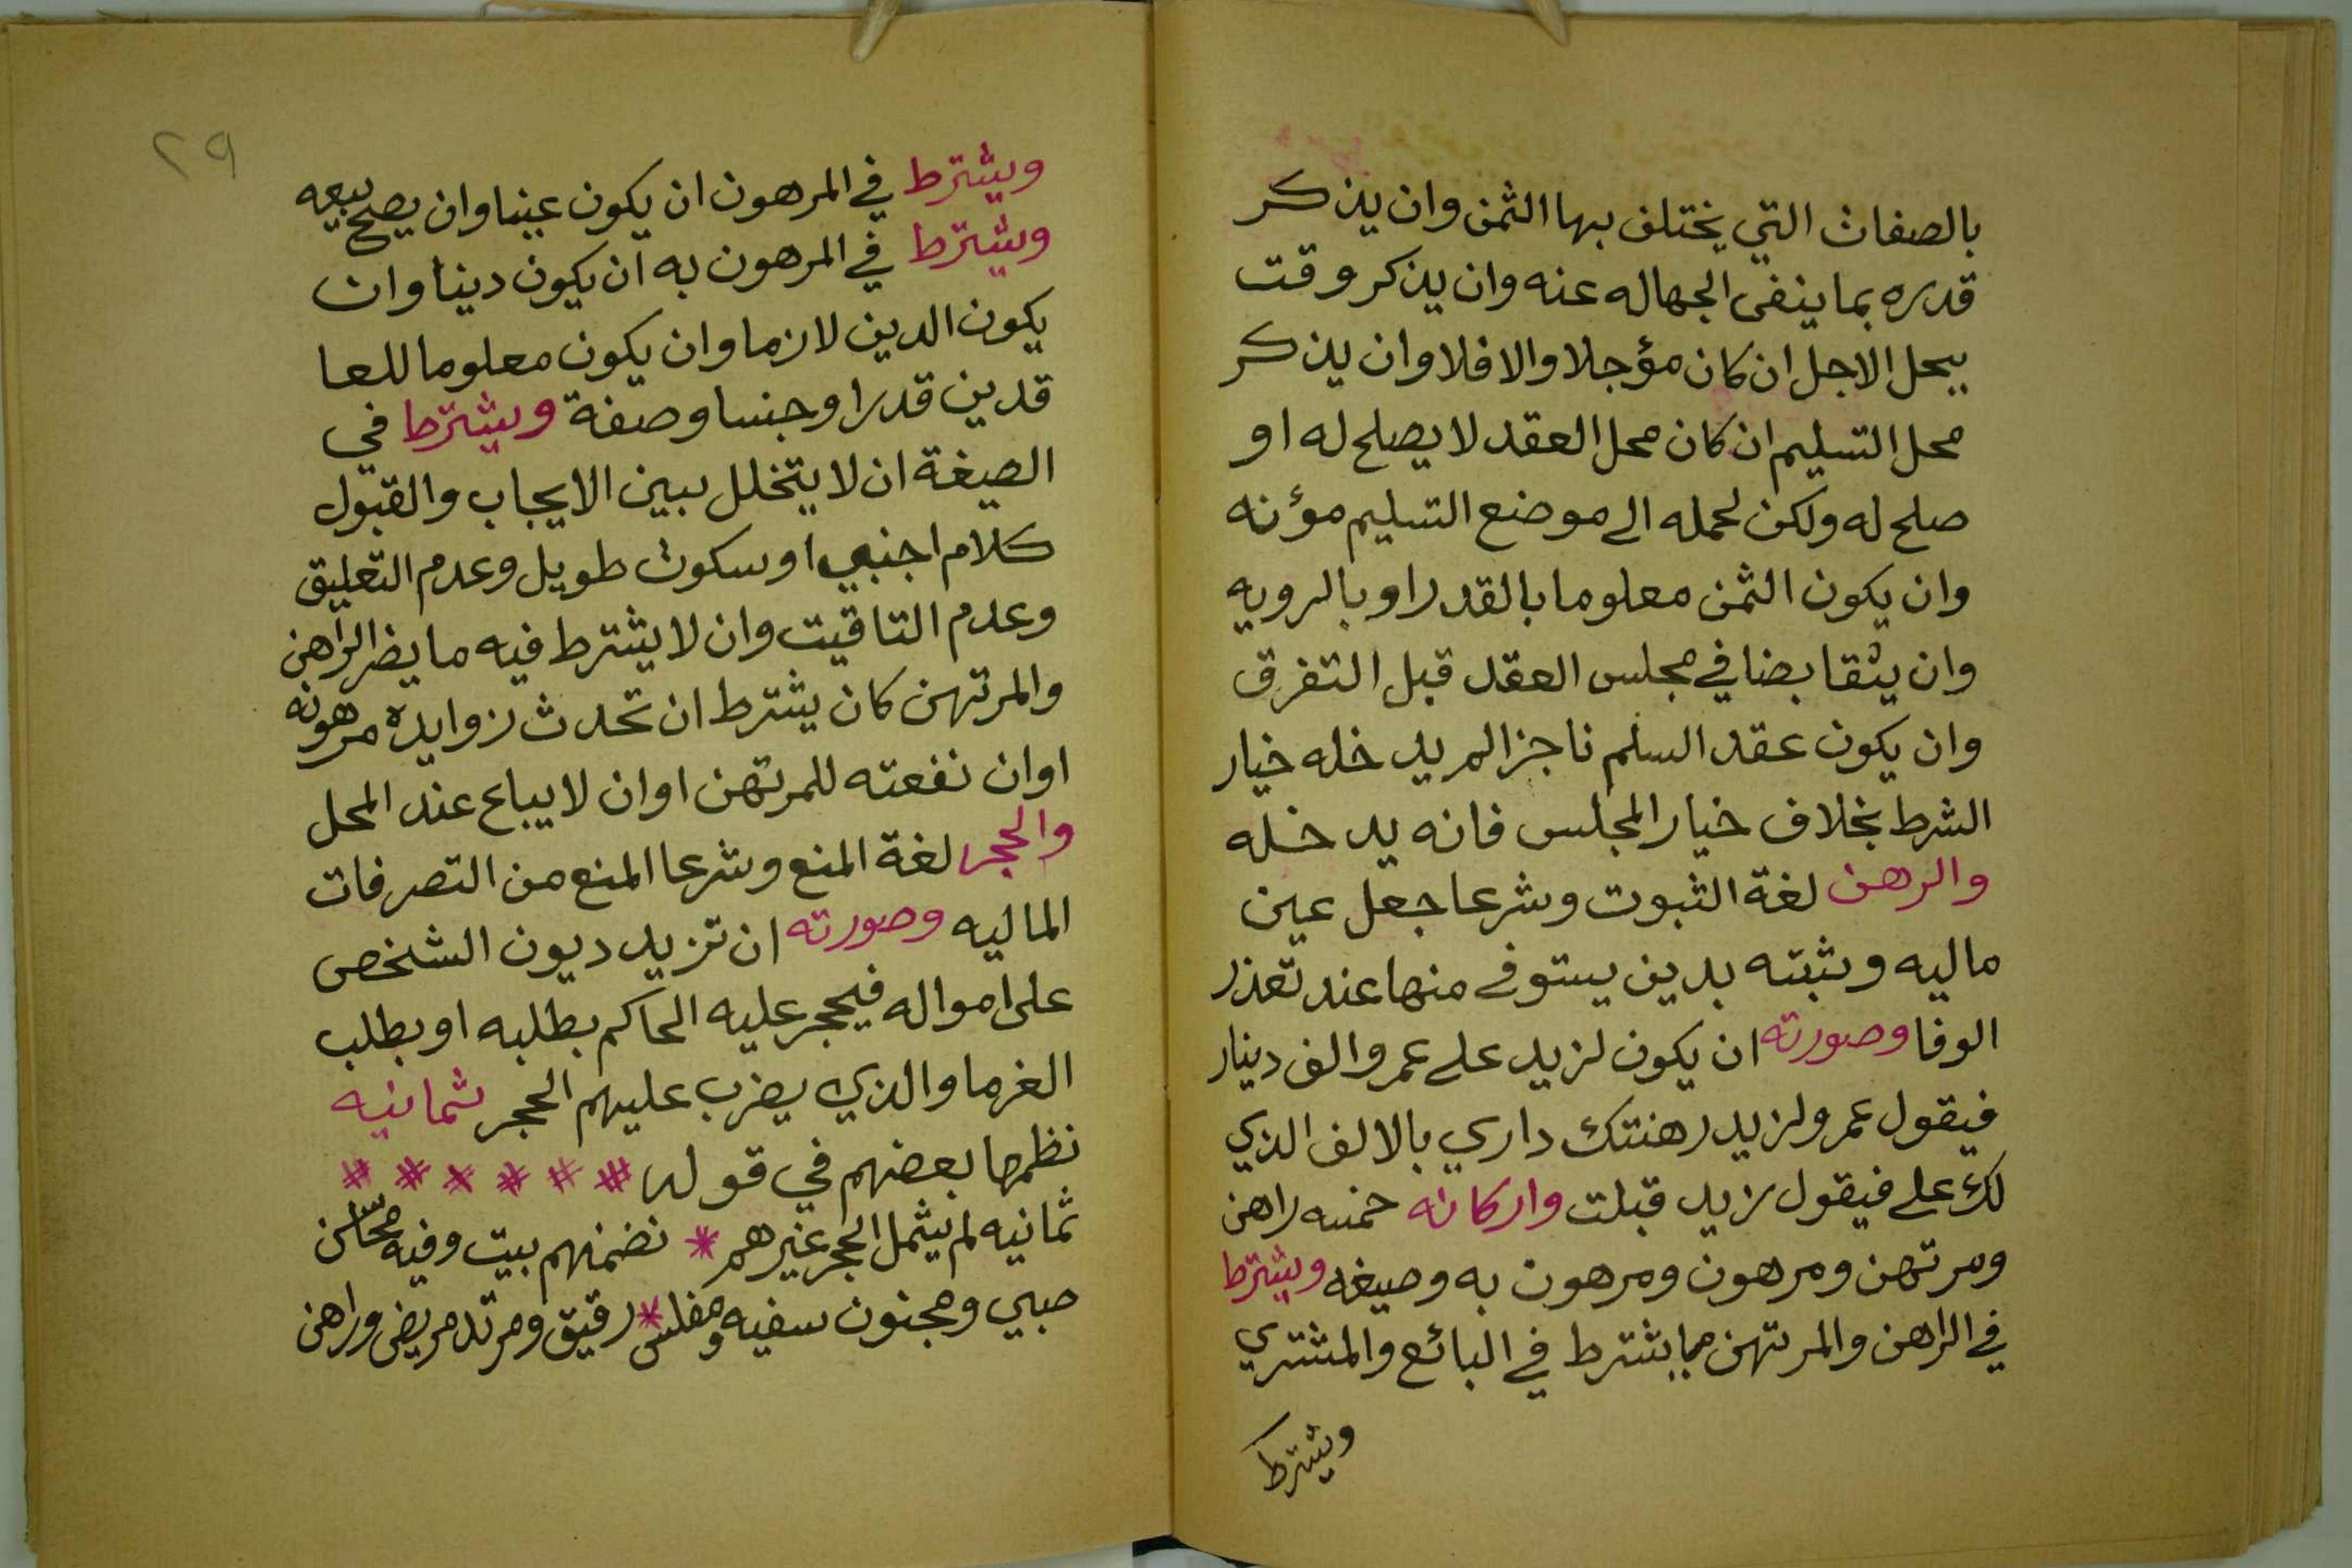 بالصفات التي يختلف بها الثمن وان يذكر
قدره بما ينفى الجهاله عنه وان يذكر وقت
يحل الاجل ان كان مؤجلا والا فلا وان يذكر
محل التسليم ان كان محل العقد لا يصلح له او
صلح له ولكن لحمله الى موضع التسليم مؤنه
وان يكون الثمن معلوما بالقدر او بالرويه
وان يتقابضا في مجلس العقد قبل التفرق
وان يكون عقد السلم ناجزا لم يدخله خيار
الشرط بخلاف خيار المجلس فانه يدخله
والرهن لغة الثبوت وشرعا جعل عين
ماليه وثيقته بدين يستوفى منها عند تعذر
الوفا وصورته ان يكون لزيد على عمرو الف دينار
فيقول عمرو لزيد رهنتك داري بالالف الذي
لك علي فيقول زيد قبلت واركانه خمسه راهن
ومرتهن ومرهون ومرهون به وصيغه ويشترط
في الراهن والمرتهن مما يشترط في البائع والمشتري
ويشترط
٢٩
ويشترط في المرهون ان يكون عينا وان يصح بيعه
ويشترط في المرهون به ان يكون دينا وان
يكون الدين لازما وان يكون معلوما للعا
قدين قدرا وجنسا وصفة ويشترط في
الصيغة ان لا يتخلل بين الايجاب والقبول
كلام اجنبي او سكوت طويل وعدم التعليق
وعدم التاقيت وان لا يشترط فيه ما يضر الراهن
والمرتهن كان يشترط ان تحدث زوايده مرهونه
او ان نفعته للمرتهن او ان لا يباع عند المحل
والحجر لغة المنع وشرعا المنع من التصرفات
الماليه وصورته ان تزيد ديون الشخص
على امواله فيحجر عليه الحاكم بطلبه او بطلب
الغرما والذي يضرب عليهم الحجر ثمانيه
نظمها بعضهم في قوله * * * * * *
ثمانيه لم يشمل الحجر غيرهم * تضمنهم بيت وفيه محاسن
صبي ومجنون سفيه ومفلس * رقيق ومرتد مريض وراهن